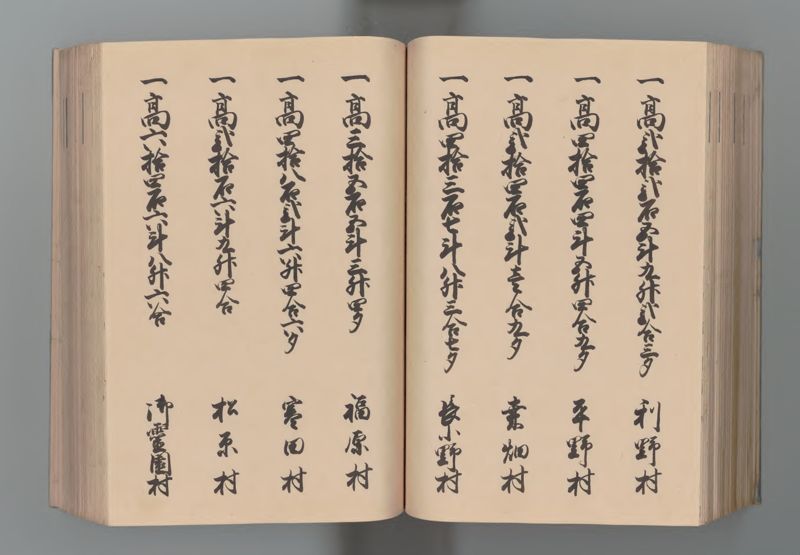 一高弐拾弐石五斗九升弐合三夕 利野村
一高四拾四石四斗五升四合九夕 平野村
一高弐拾四石弐斗壱合九夕 桑畑村
一高四拾三石七斗八升三合七夕 長小野村
一高三拾五石五斗三升四夕 福原村
一高四拾八石弐斗六升四合六夕 寒田村
一高弐拾石六斗九升四合 松原村
一高六拾四石六斗八升六合 御霊園村